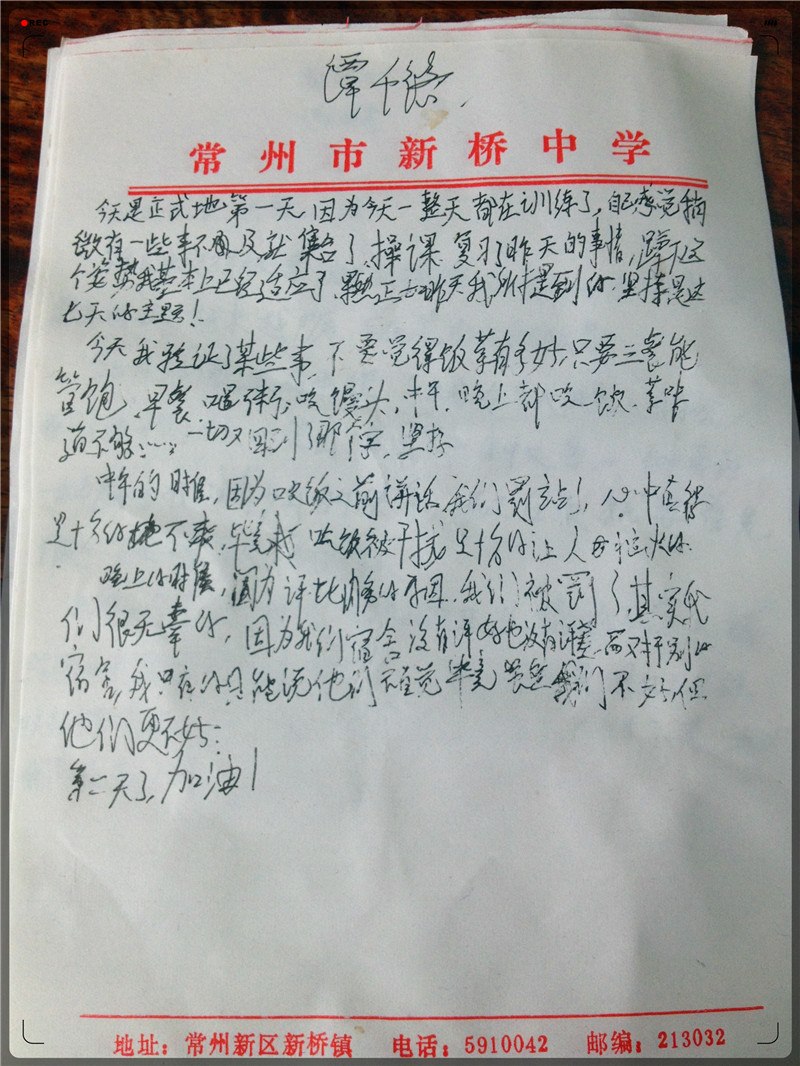 谭千
常州市新桥中学
今天是正式地第一天,因为今天一整天都在训练了,自己感觉稍
微有一些事不及就集合了,操课复习了昨天的事情,蹲下这
个姿势我基本上已经适应了,正如昨天我所提到的,坚持是这
七天的主题!
今天我验证了某些事,不要觉得饭菜有多好,只要三餐能
管饱,早餐喝粥吃馒头,中午、晚上都吃饭,菜味
道不够……一切又回到了那个字,坚持
中午的时候,因为吃饭之前讲话,我们罚站!心中真
是十分的不爽,毕竟吃饭被干扰是十分的让人恼火的
晚上的时候,因为评比的原因,我们被罚了,其实我
们很无辜的,因为我们宿舍没有评好也没有评差,而又有别的
宿舍,我只能说他们毕竟我们不好但
他们更不好:
第二天了,加油!
地址:常州新区新桥镇 电话:5910042 邮编:213032